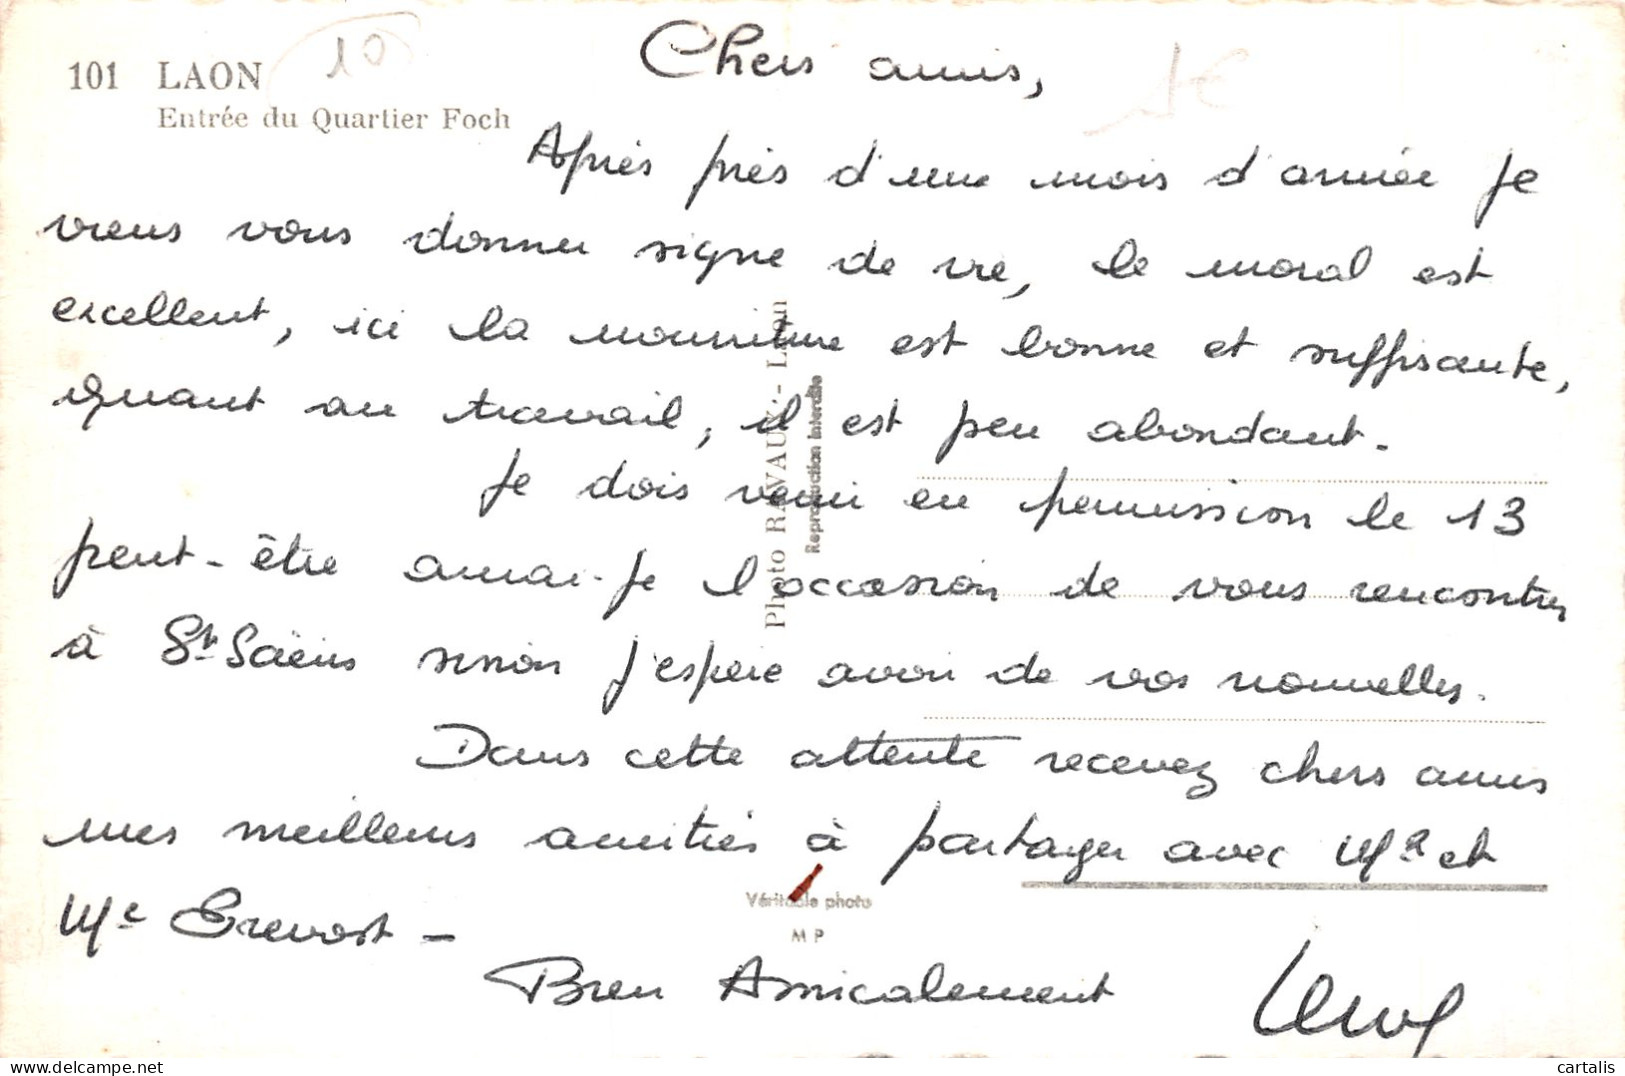 101 LAON
Entrée du Quartier Foch
10
1€
Chers amis,
Après près d'une mois d'armée je
viens vous donner signe de vie, le moral est
excellent, ici la nourriture est bonne et suffisante,
quant au travail, il est peu abondant.
Je dois venir en permission le 13
peut-être aurai-je l'occasion de vous rencontrer
à St Saëns sinon j'espère avoir de vos nouvelles.
Dans cette attente recevez chers amis
mes meilleurs amitiés à partager avec Mr et
Me Prevost -
Bien Amicalement
Photo RAVAUX - Laon
Reproduction interdite
Véritable photo
M P
delcampe.net
cartalis